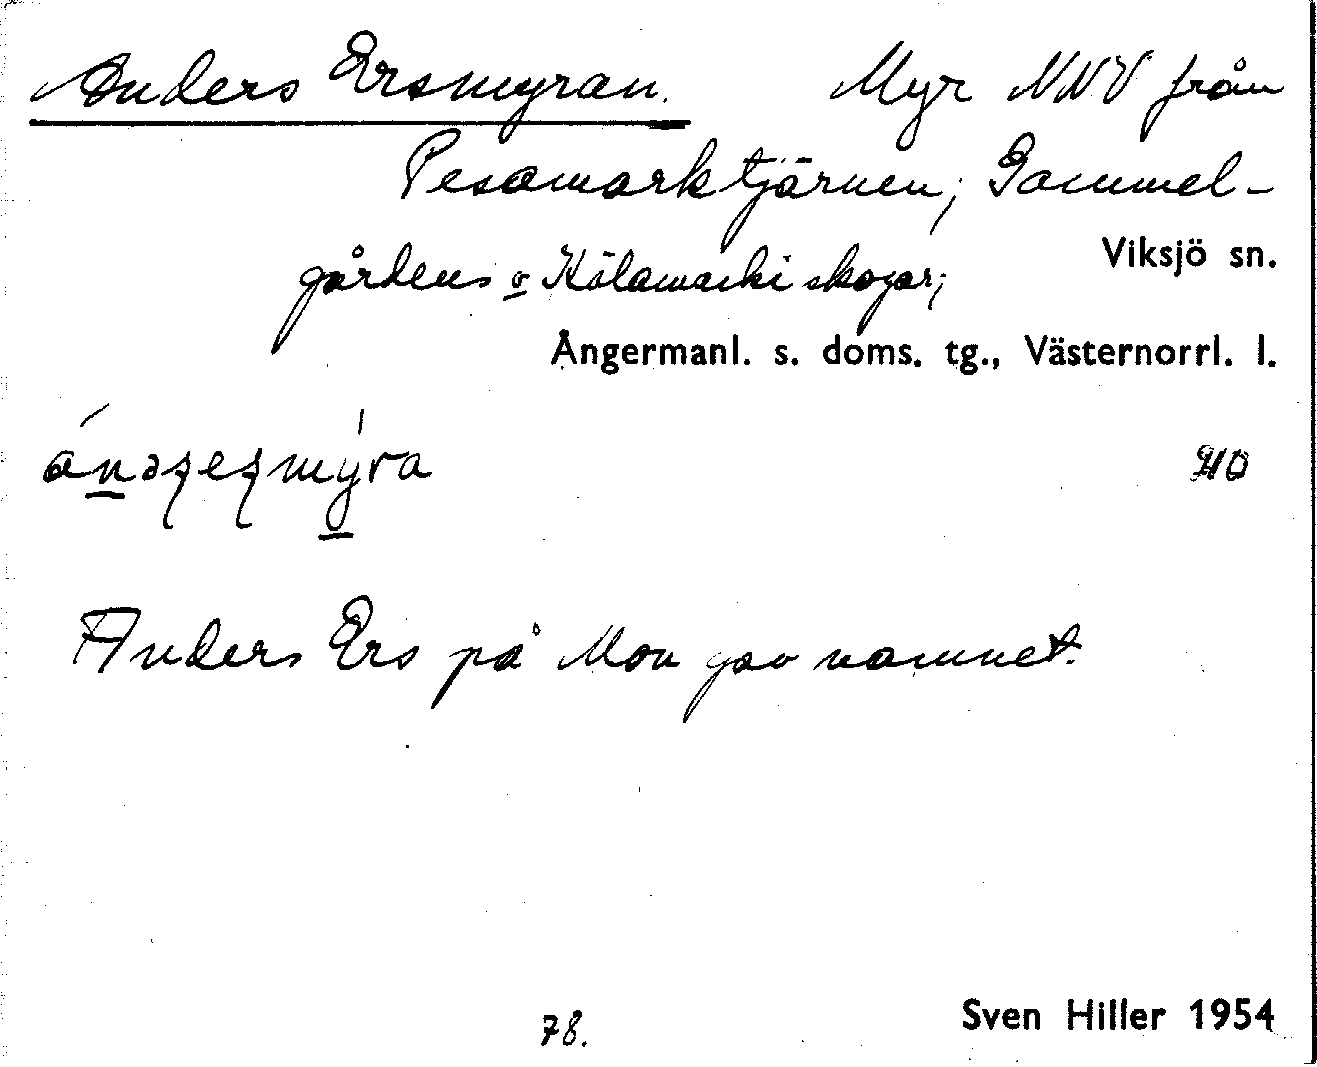 Anders Ersmyran. Myr NNV från
Pesamarktjärnen; Gammel-
gårdens o Kölamarks skogar;
Viksjö sn.
Ångermanl. s. doms. tg., Västernorrl. l.
Anders Ers på Mon gav namnet.
78.
Sven Hiller 1954